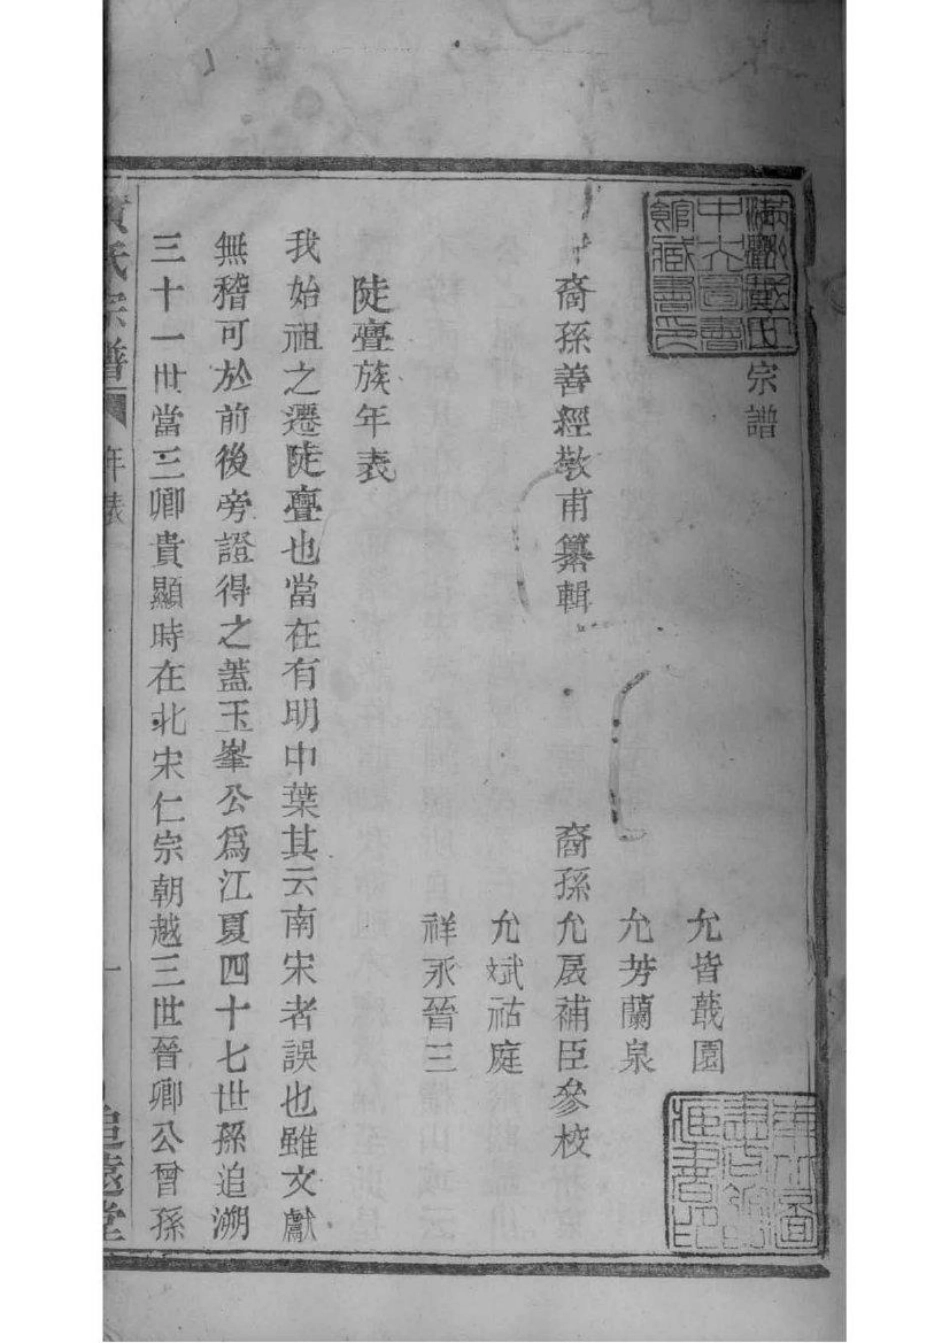 宗譜
允皆蕺園
允芳蘭泉
裔孫善經敬甫纂輯 裔孫允晟補臣參校
允斌祜庭
祥永晉三
陡亹族年表
我始祖之遷陡亹也當在有明中葉其云南宋者誤也雖文獻
無稽可於前後旁證得之蓋玉峯公爲江夏四十七世孫追溯
三十一世當三卿貴顯時在北宋仁宗朝越三世晉卿公曾孫
黃氏宗譜 年表 一 追遠堂